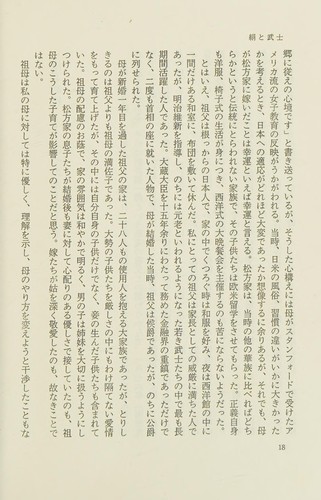 絹と武士
郷に従えの心境です」と書き送っているが、そうした心構えには母がスタンフォードで受けたア
メリカ流の女子教育の反映がうかがわれる。当時、日米の風俗、習慣の違いがいかに大きかった
かを考えるとき、日本への適応がどれほど大変であったか想像するに余りあるが、それでも、母
が松方家に嫁いだことは幸運といえば幸運と言える。松方家は、当時の他の華族に比べればどち
らかというと伝統にとらわれない家族で、その子供たちは欧米留学をさせてもらった。正義自身
も洋服、椅子式の生活が身につき、西洋式の大晩餐会を主催するのも苦にならないようだった。
とはいえ、祖父は根っからの日本人で、家の中でくつろぐ時は和服を好み、夜は西洋館の中に
一間だけある和室に、布団を敷いて休んだ。私にとっての祖父は家長としての威厳に満ちた人で
あったが、明治維新を指導し、のちには元老といわれるようになった若き武士たちの中で最も長
期間活躍した人であった。大蔵大臣を十五年余りにわたって務めた金融界の重鎮であっただけで
なく、二度も首相の座に就いた人物で、母が結婚した当時、祖父は侯爵であったが、のちに公爵
に列せられた。
母が新婚一年目を過した祖父の家は、二十八人もの使用人を抱える大家族であったが、とりし
きるのは祖父よりも祖母の満佐子であった。大勢の子供たちを厳しさの中にもわけ隔てない愛情
をもって育て上げたが、その中には自分自身の子供だけでなく、妾の生んだ子供たちも含まれて
いた。祖母の配慮のお蔭で、家の雰囲気は和やかで明るく、男の子は姉妹を大切に扱うようにし
つけられた。松方家の息子たちが結婚後も妻に対して心配りのある優しさで接していたのも、祖
母のこうした子育てが影響してのことだと思う。嫁たちが姑を深く敬愛したのも、故なきことで
はない。
祖母は私の母に対しては特に優しく、理解を示し、母のやり方を変えようと干渉したこともな
18